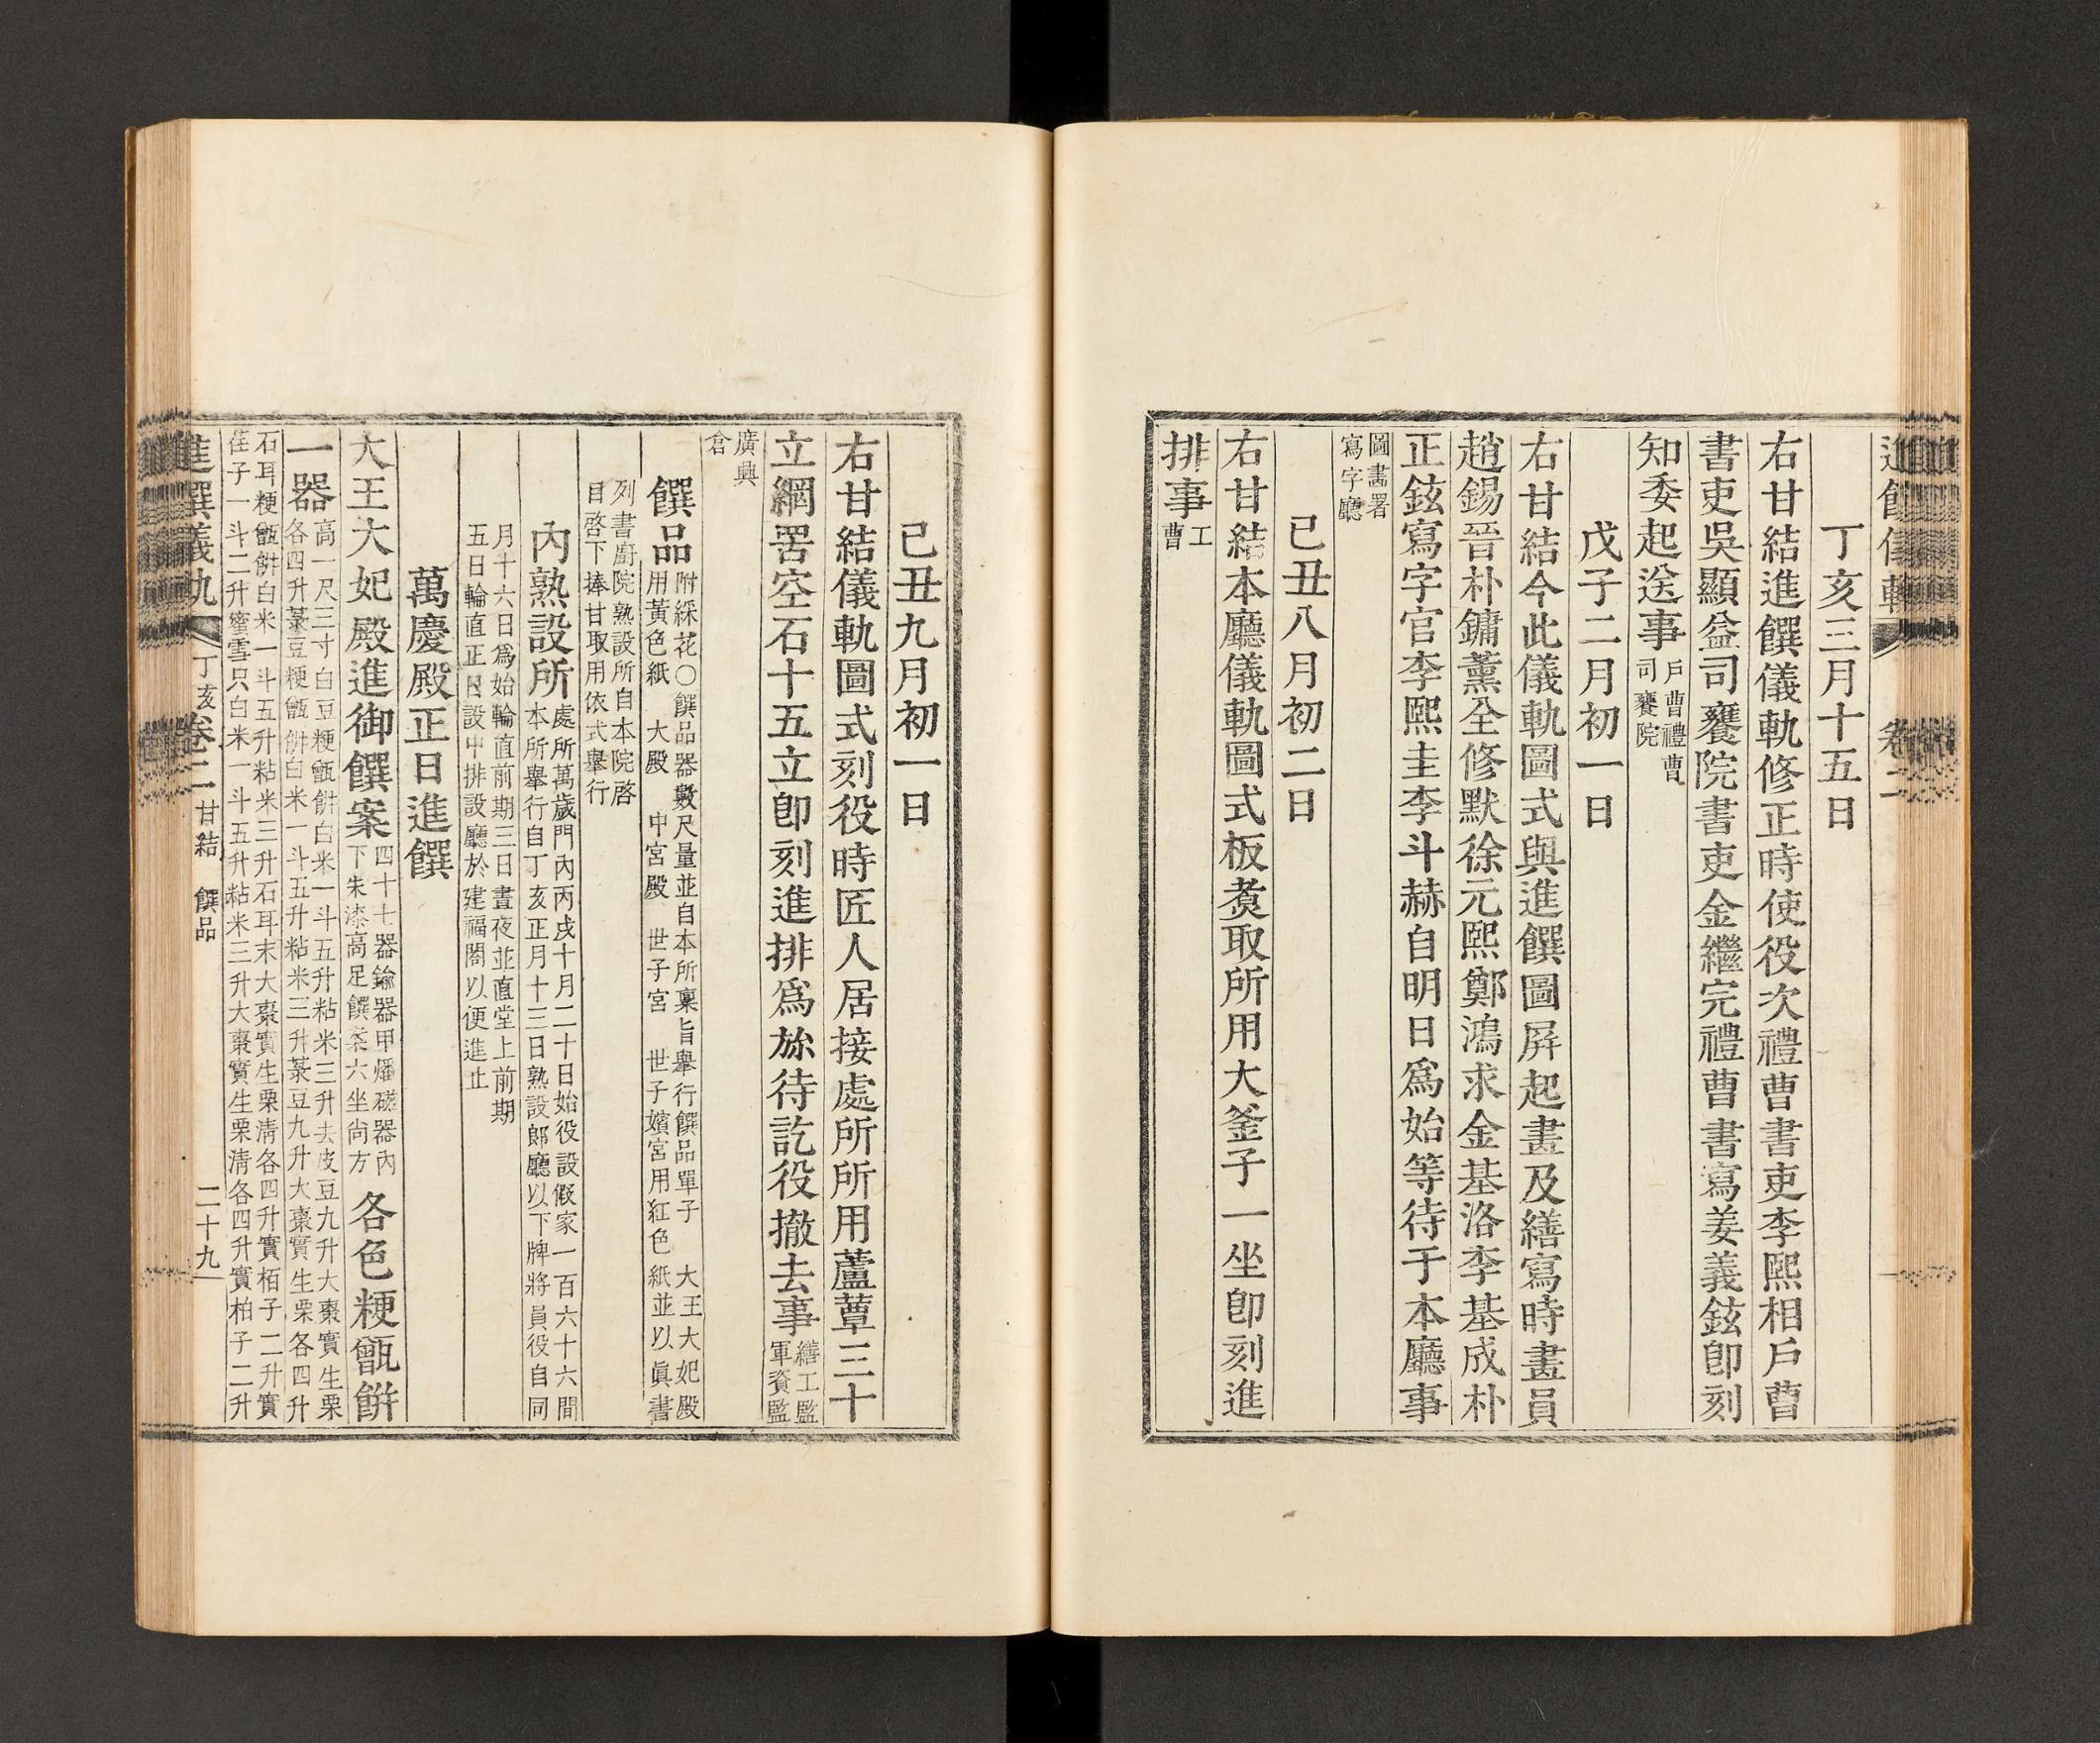 卷二
丁亥三月十五日
右甘結進饌儀軌修正時使役次禮曹書吏李熙相戶曹
書吏吳顯益司饔院書吏金繼完禮曹書寫姜義鉉卽刻
知委起送事
戶曹禮曹
司饔院
戊子二月初一日
右甘結今此儀軌圖式與進饌圖屛起畫及繕寫時畫員
趙錫晉朴鏞薰全修默徐元熙鄭鴻求金基洛李基成朴
正鉉寫字官李熙圭李斗赫自明日爲始等待于本廳事
圖畵署
寫字廳
己丑八月初二日
右甘結本廳儀軌圖式板煑取所用大釜子一坐卽刻進
排事
工
曹
己丑九月初一日
右甘結儀軌圖式刻役時匠人居接處所所用蘆蕈三十
立網罟空石十五立卽刻進排爲旀待訖役撤去事
繕工監
軍資監
廣興
倉
饌品
附綵花○饌品器數尺量並自本所稟旨擧行饌品單子 大王大妃殿
用黃色紙 大殿 中宮殿 世子宮 世子嬪宮用紅色紙並以眞書
列書廚院熟設所自本院啓
目啓下捧甘取用依式擧行
內熟設所
處所萬歲門內丙戌十月二十日始役設假家一百六十六間
本所擧行自丁亥正月十三日熟設郞廳以下牌將員役自同
月十六日爲始輪直前期三日晝夜並直堂上前期
五日輪直正日設中排設廳於建福閤以便進止
萬慶殿正日進饌
大王大妃殿進御饌案
四十七器鍮器甲燔磁器內
下朱漆高足饌案六坐尙方
各色粳甑餠
一器
高一尺三寸白豆粳甑餠白米一斗五升粘米三升去皮豆九升大棗實生栗
各四升菉豆粳甑餠白米一斗五升粘米三升菉豆九升大棗實生栗各四升
石耳粳甑餠白米一斗五升粘米三升石耳末大棗實生栗淸各四升實栢子二升實
荏子一斗二升蜜雪只白米一斗五升粘米三升大棗實生栗淸各四升實柏子二升
進饌儀軌 丁亥 卷二 甘結 饌品 二十九